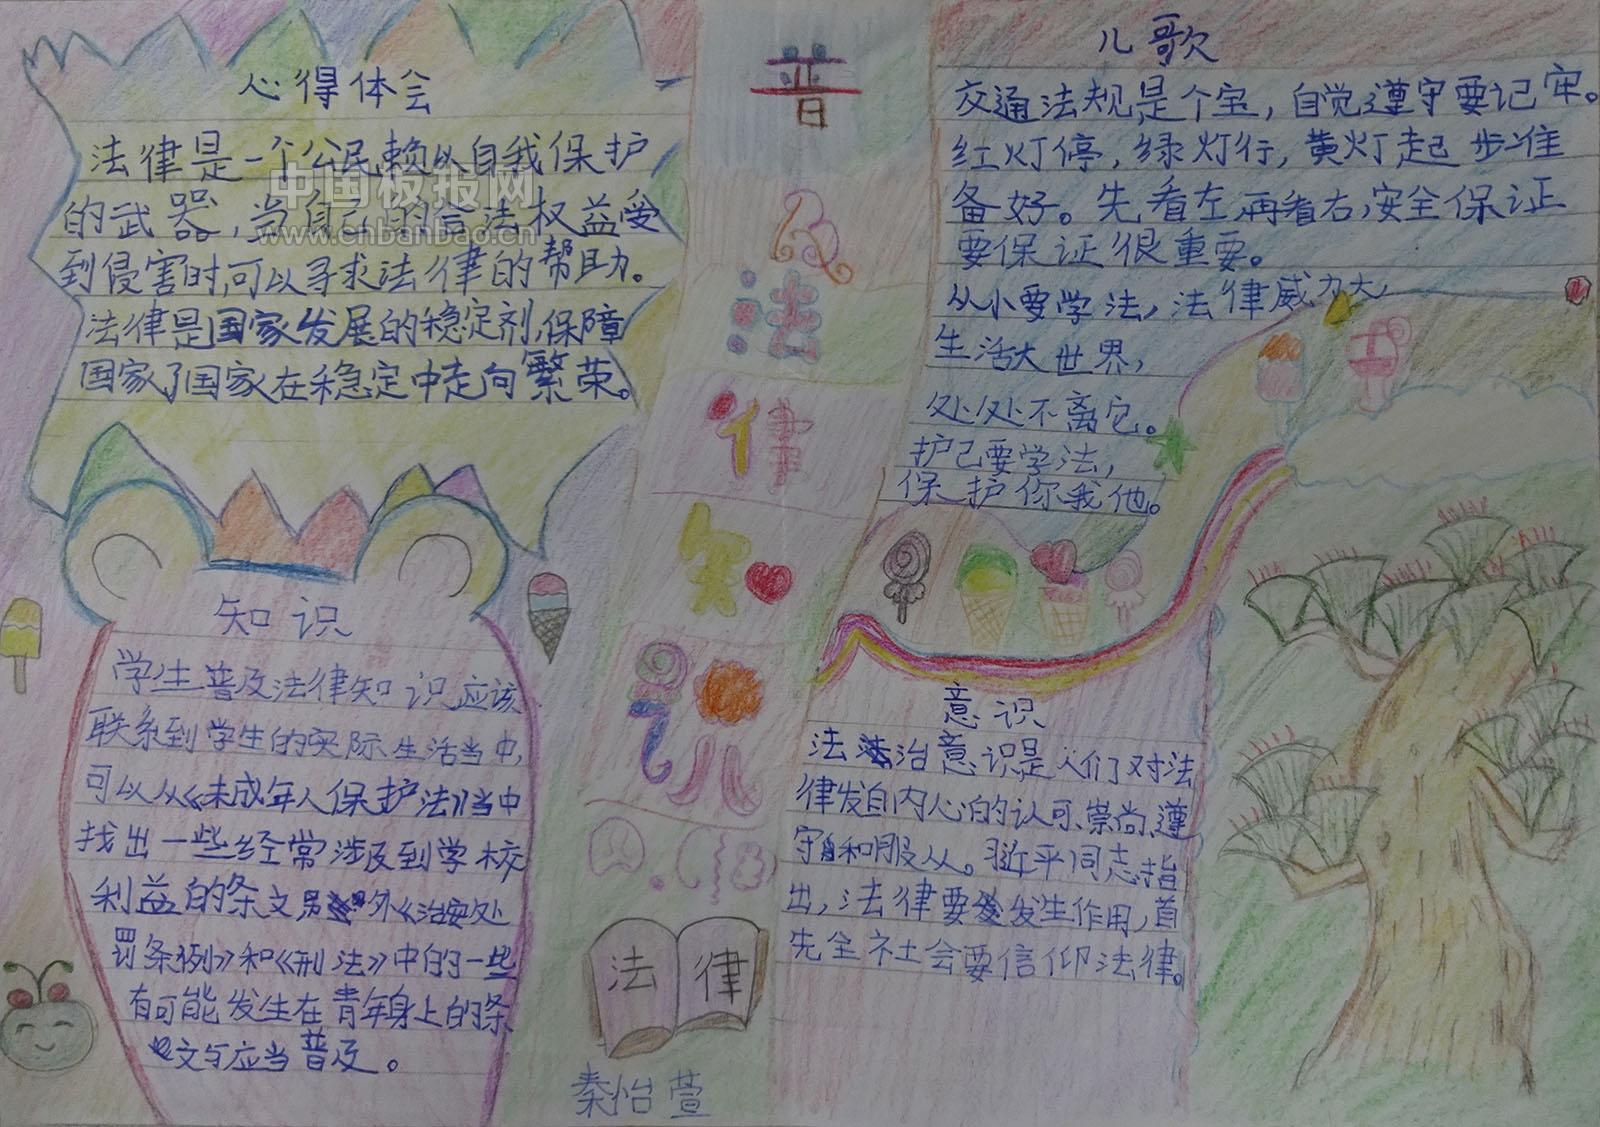 心得体会
法律是一个公民赖以自我保护
的武器，当自己的合法权益受
到侵害时,可以寻求法律的帮助。
法律是国家发展的稳定剂,保障
国家了国家在稳定中走向繁荣。
中国板报网
www.chbanbao.cn
知识
学生普及法律知识应该
联系到学生的实际生活当中,
可以从《未成年人保护法》当中
找出一些经常涉及到学校
利益的条文另外《治安处
罚条例》和《刑法》中的一些
有可能发生在青年身上的条
文与应当普及。
普
及
法
律
知
识
法律
秦怡萱
儿歌
交通法规是个宝，自觉遵守要记牢。
红灯停，绿灯行，黄灯起步准
备好。先看左,再看右,安全保证
要保证很重要。
从小要学法，法律威力大，
生活大世界，
处处不离它。
护己要学法，
保护你我他。
意识
法治意识是人们对法
律发自内心的认可、崇尚、遵
守和服从。习近平同志指
出，法律要发生作用，首
先全社会要信仰法律。